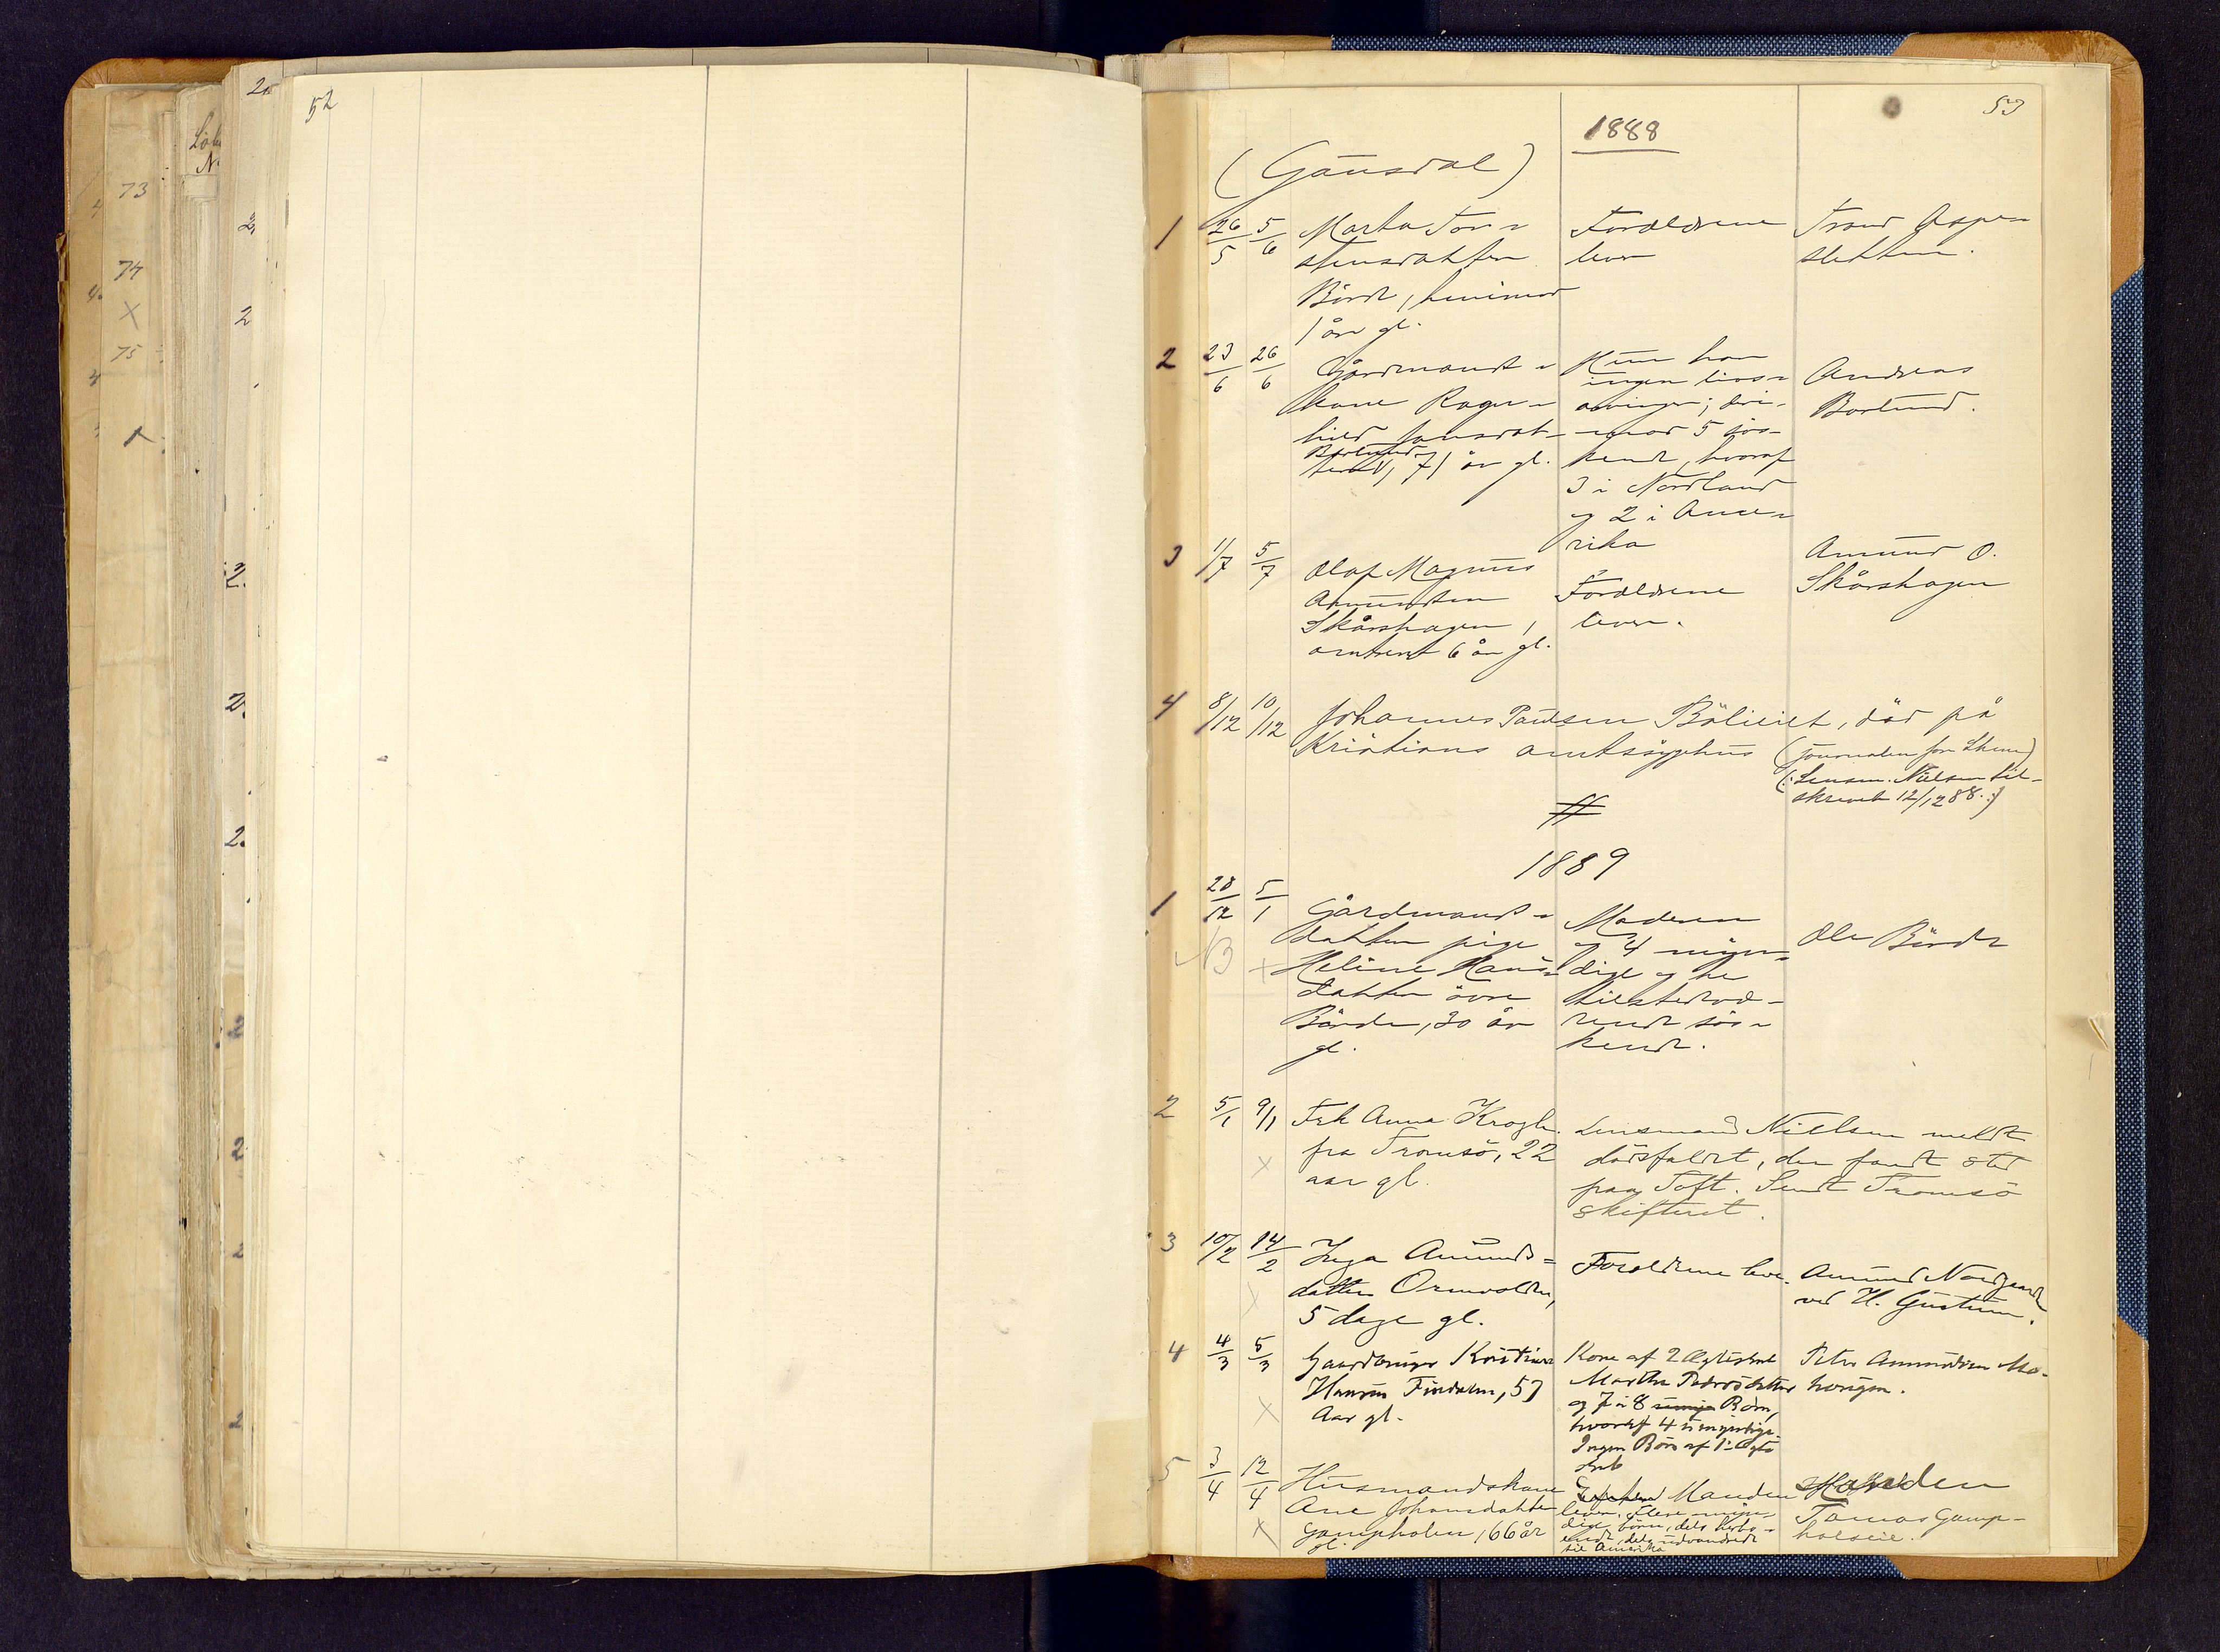 52
53
1888
(Gausdal)
1 26/5 5/6 Marta Tor-
stensdatter
Børde, henimod
1 år gl.
Forældrene
lever
Trond Aspe-
sletten.
2 23/6 26/6 Gårdmands-
kone Ragn-
hild Jonsdat-
Børlund
ter, 71 år gl.
Hun har
ingen livs-
arvinger; deri-
mod 5 søs-
kende, hvoraf
3 i Nordland
og 2 i Ame-
rika
Andreas
Børlund.
3 1/7 5/7 Olaf Magnus
Amundsen
Skårshagen,
omtrent 6 år gl.
Forældrene
lever.
Amund O.
Skårshagen
4 8/12 10/12 Johannes Paulsen Bølieiet, død på
Kristians amtssygehus
(journalen for
(: Lensm. Nielsen til-
skrevet 12/12 88.:)
1889
1 28/12 5/1 Gårdmands-
datter pige
Heline Hans-
datter øvre
Børde, 30 år
gl.
NB
Moderen
og 4 myn-
dige og her
tilstedevæ-
rende søs-
kende.
Ole Børde
2 5/1 9/1 Frk Anna Krogh
fra Tromsø, 22
aar gl.
Lensmand Nielsen meldt
dødsfaldet, der fandt sted
paa Toft. Sendt Tromsø
skifteret.
3 10/2 14/2 Inga Amunds=
datter Ormvolden,
5 dage gl.
Forældrene leve.
Amund Nordgaard
ved H. Gustum.
4 4/3 5/3 Gaardbruger Kristian
Hansen Findalen, 57
Aar gl.
Kone af 2 Ægteskab
Marthe Pedersdatter
og 7 a 8 Børn,
hvoraf 4 umyndige.
Ingen Børn af 1ste Ægte
skab
Peter Amundsen Mo-
havugen.
5 3/4 12/4 Husmandskone
Ane Johansdatter
Gampholen, 66 år
gl.
Manden
lever. Flere myn-
dige børn, dels herbo-
ende, dels udvandrede
til Amerika
Manden
Tomas Gamp-
holseie.